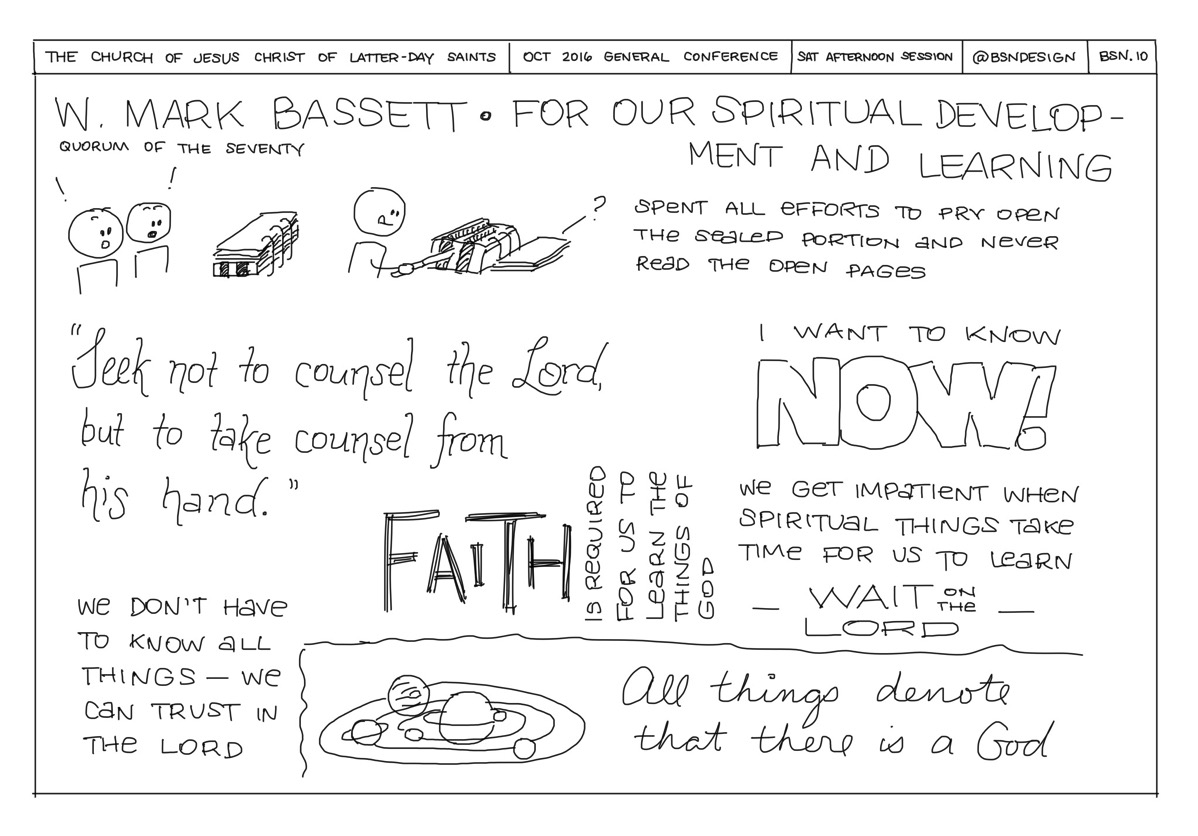 THE CHURCH OF JESUS CHRIST OF LATTER-DAY SAINTS
OCT 2016 GENERAL CONFERENCE
SAT AFTERNOON SESSION
@BSNDESIGN
BSN.10
W. MARK BASSETT • FOR OUR SPIRITUAL DEVELOP-
MENT AND LEARNING
QUORUM OF THE SEVENTY
! !
?
SPENT ALL EFFORTS TO PRY OPEN
THE SEALED PORTION AND NEVER
READ THE OPEN PAGES
"Seek not to counsel the Lord,
but to take counsel from
his hand."
I WANT TO KNOW
NOW!
WE GET IMPATIENT WHEN
SPIRITUAL THINGS TAKE
TIME FOR US TO LEARN
— WAIT ON THE —
LORD
FAITH
IS REQUIRED
FOR US TO
LEARN THE
THINGS OF
GOD
WE DON'T HAVE
TO KNOW ALL
THINGS — WE
CAN TRUST IN
THE LORD
All things denote
that there is a God